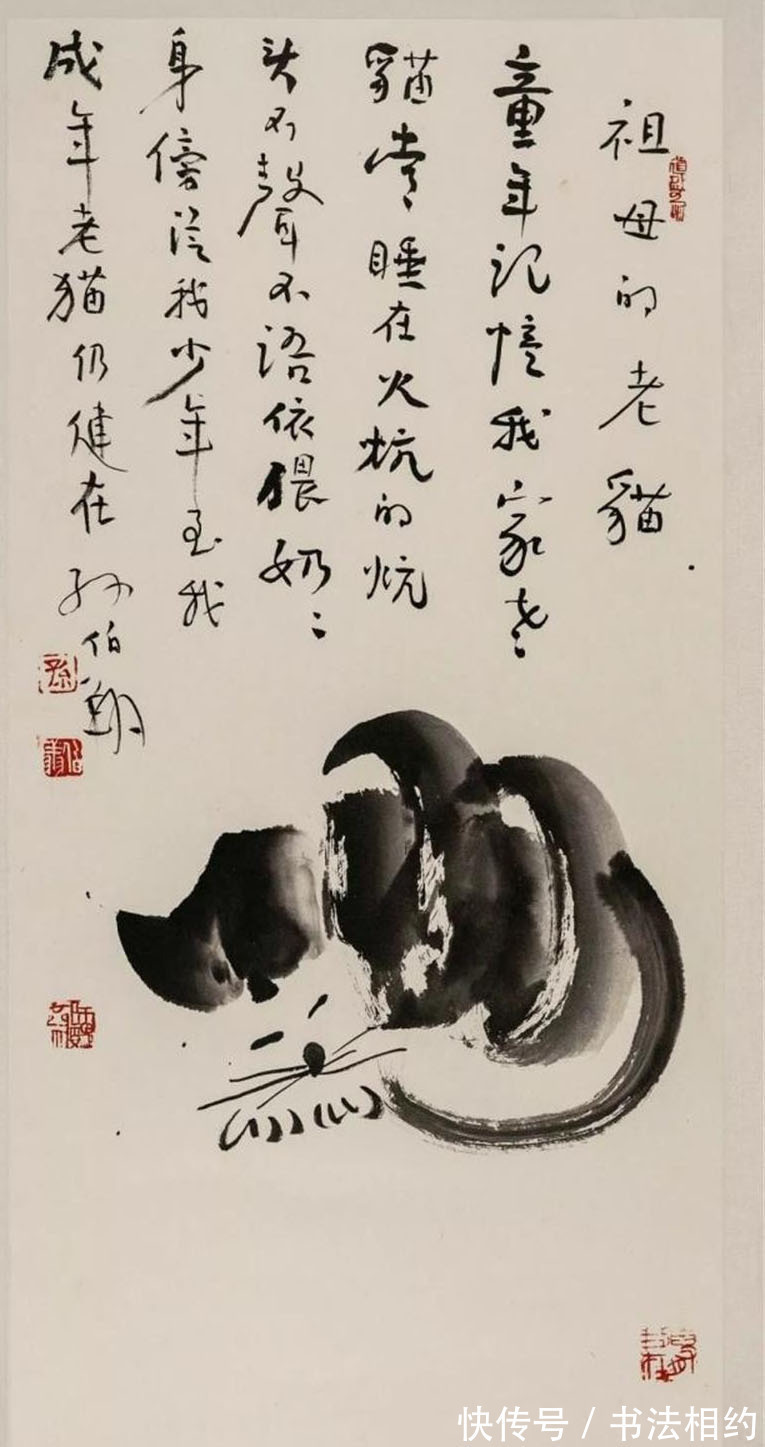 祖母的老貓
童年記憶我家老
貓常〻睡在火炕的炕
头不聲不语依猥奶〻
身傍從我少年至我
成年老猫仍健在 孙伯翔
快传号 / 书法相约